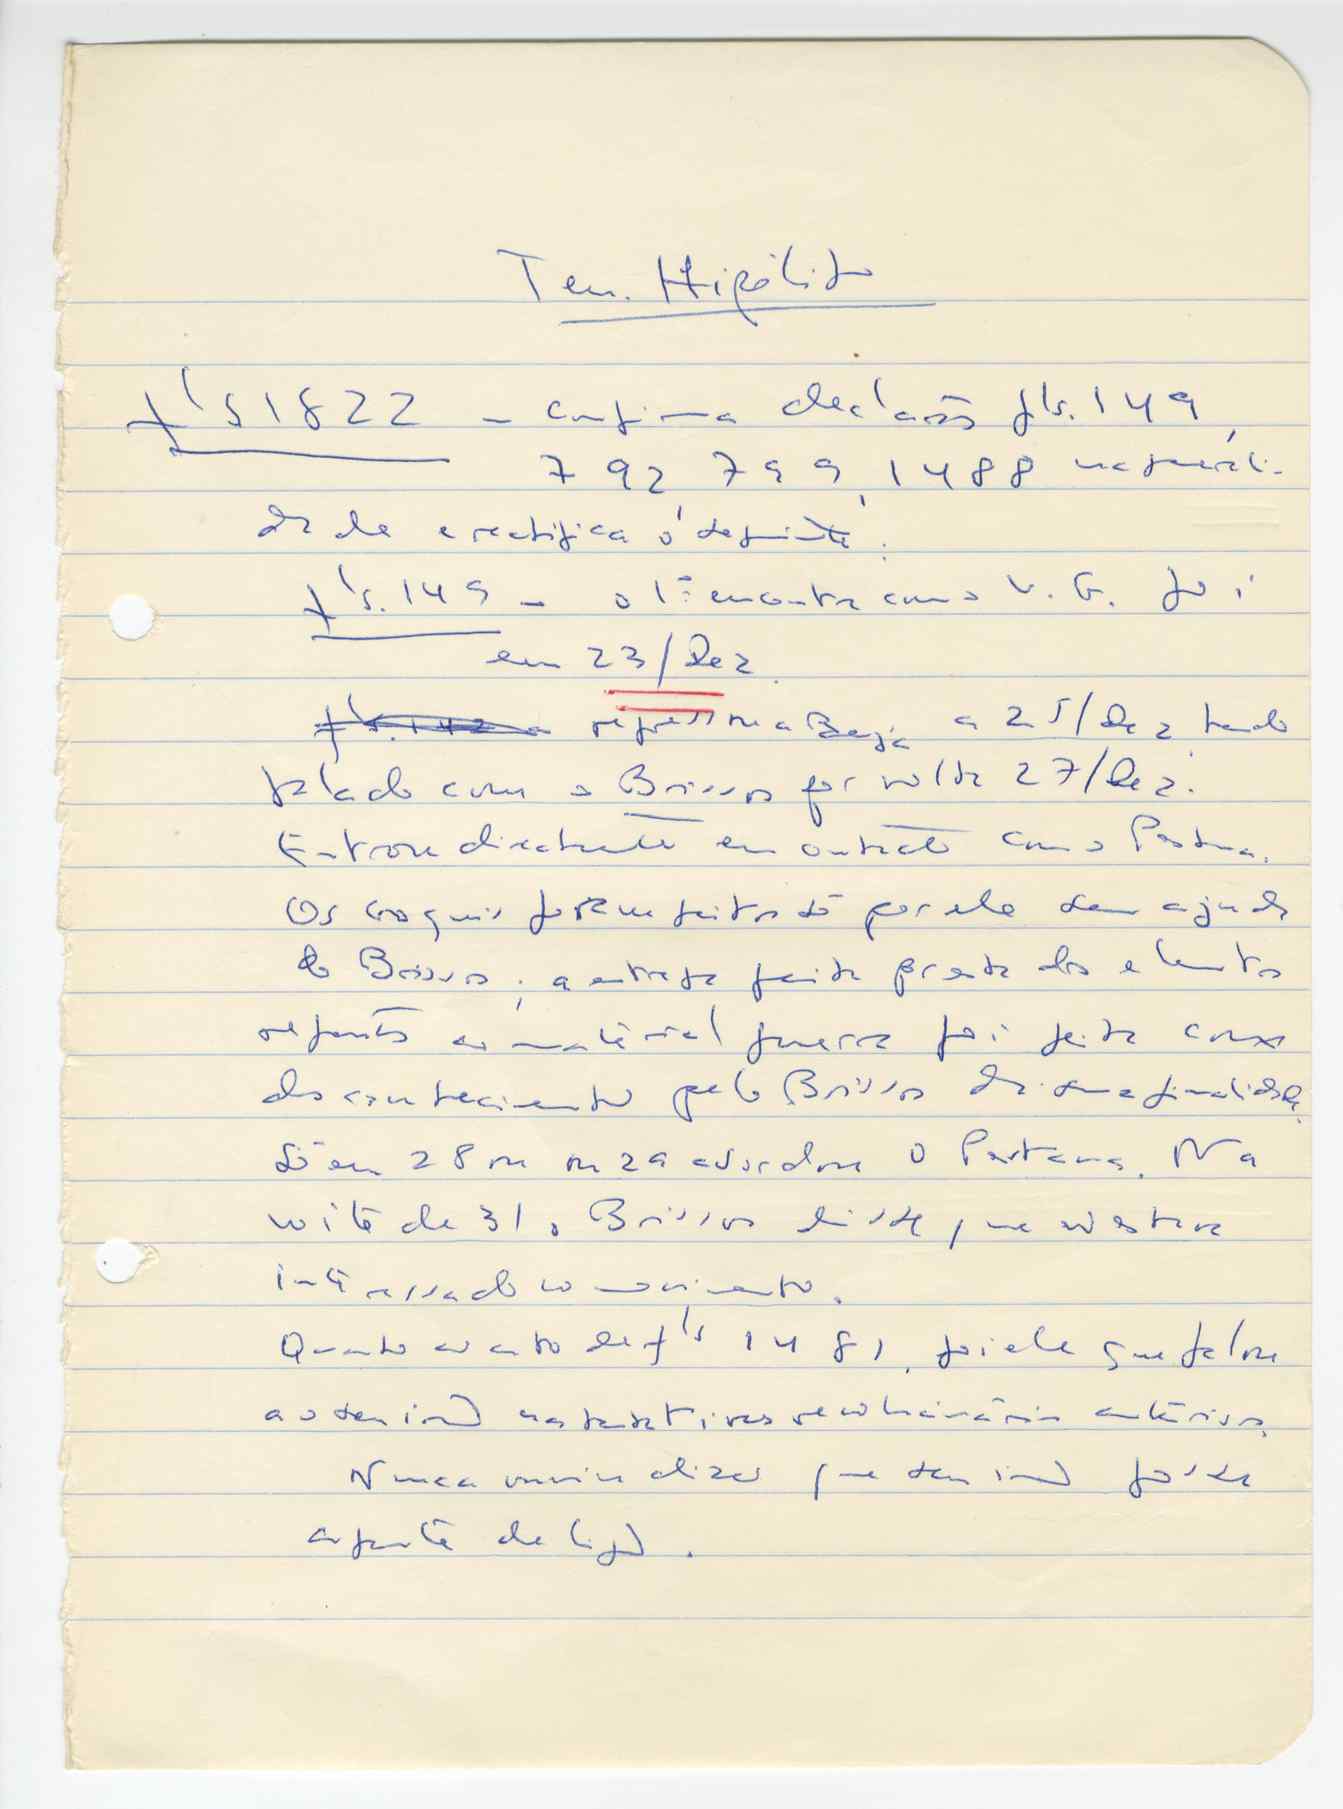 Ten. Hipólito
fls 1822 - confirma declarações fls. 149,
792, 799, 1488 na generali-
dade e rectifica o seguinte:
fls. 149 - o 1º encontro com o V. G. foi
em 23/Dez.
regressou a Beja a 25/Dez, tendo
falado com o Brissos por volta 27/Dez.
Entrou directamente em contacto com o Pestana.
Os croquis foram feitos só por ele sem ajuda
do Brissos; a entrega feita por este dos elementos
referentes ao material guerra foi feita com
desconhecimento pelo Brissos da sua finalidade.
Só em 28 ou 29 abordou o Pestana. Na
noite de 31 o Brissos disse que não estava
interessado no movimento.
Quanto ao auto de fls 1481, foi ele que falou
ao seu irmão nas tentativas revolucionárias anteriores.
Nunca ouviu dizer que seu irmão fosse
agente de ligação.